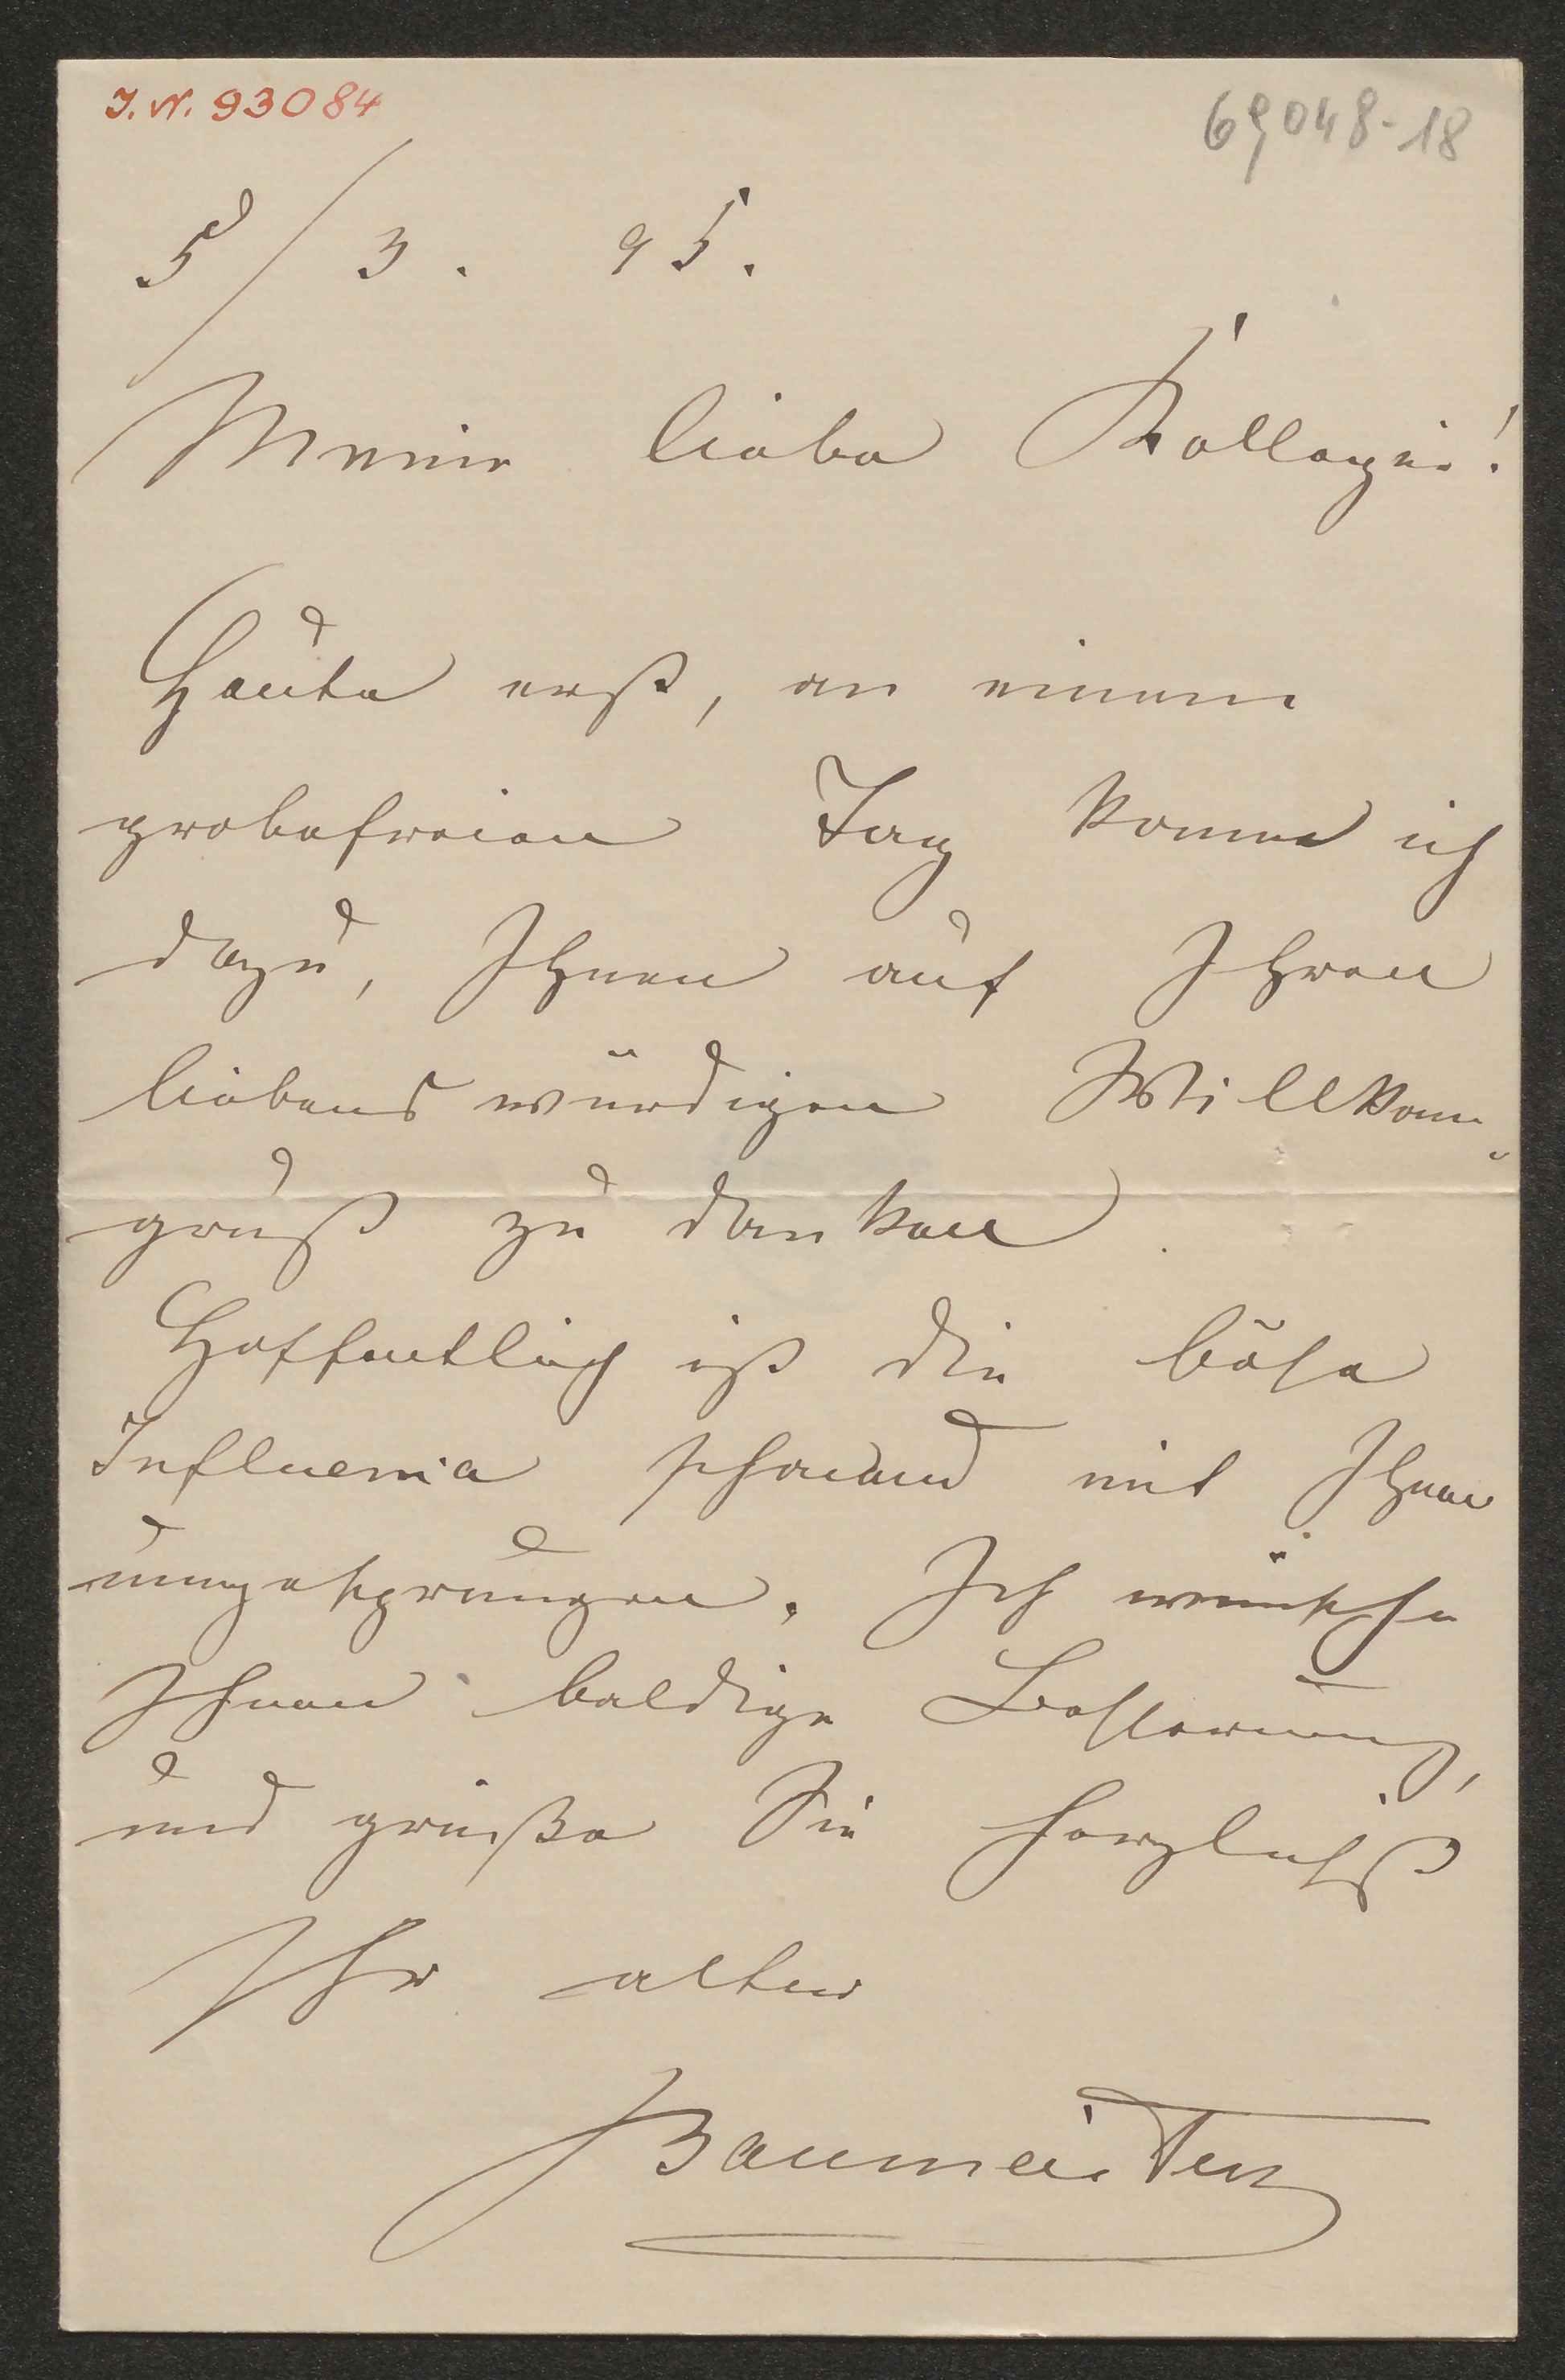 I. N. 93084
69048-18
5/3. 95.
Meine liebe Kollegin!
Heute erst, an einem
probefreien Tag komme ich
dazu, Ihnen auf Ihren
liebenswürdigen Willkom-
gruß zu danken.
Hoffentlich ist die böse
Influenza schonend mit Ihnen
umgesprungen. Ich wünsche
Ihnen baldige Besserung,
und grüße Sie herzlichst
Ihr alter
Baumeister